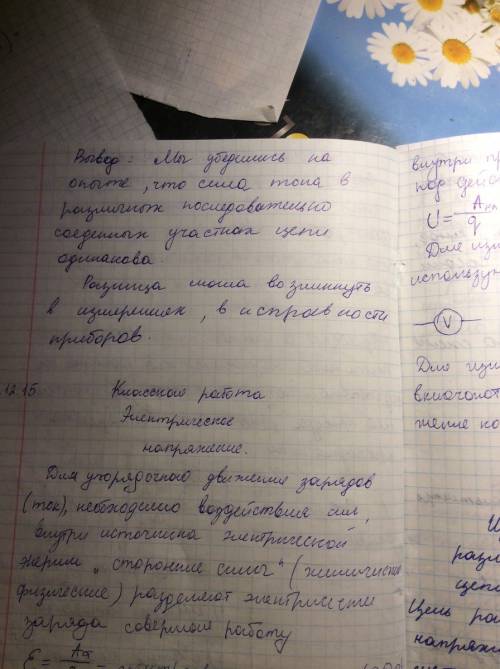 Вывод: Мы убедились на
опыте, что сила тока в
различных последовательно
соеденных участках цепи
одинакова.
Разница могла возникнуть
в измерениях, в исправности
приборов.
12.15
Классная работа
Электрическое
напряжение.
Для упорядочного движения зарядов
(ток), необходимо воздействие сил,
внутри источника электрической
энергии "сторонние силы" (химические
физические) разделяют электрические
заряда совершая работу
внутри пр
под дей
U =
q
Для изм
использую
V
Для изм
включают
жение на
разли
цепи
Цель раб
напряжен